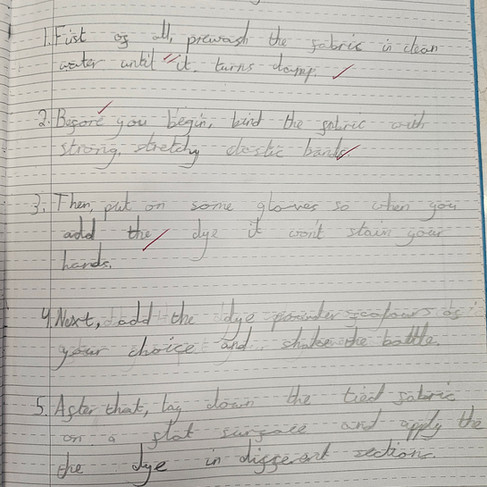 1. Fist of all, prewash the fabric in clean
water until it turns damp.
2. Before you begin, bind the fabric with
strong, stretchy elastic bands
3. Then, put on some gloves so when you
add the dye it won't stain your
hands.
4. Next, add the dye powder colours of
your choice and shake the bottle.
5. After that, lay down the tied fabric
on a flat surface and apply the
the dye in different sections.